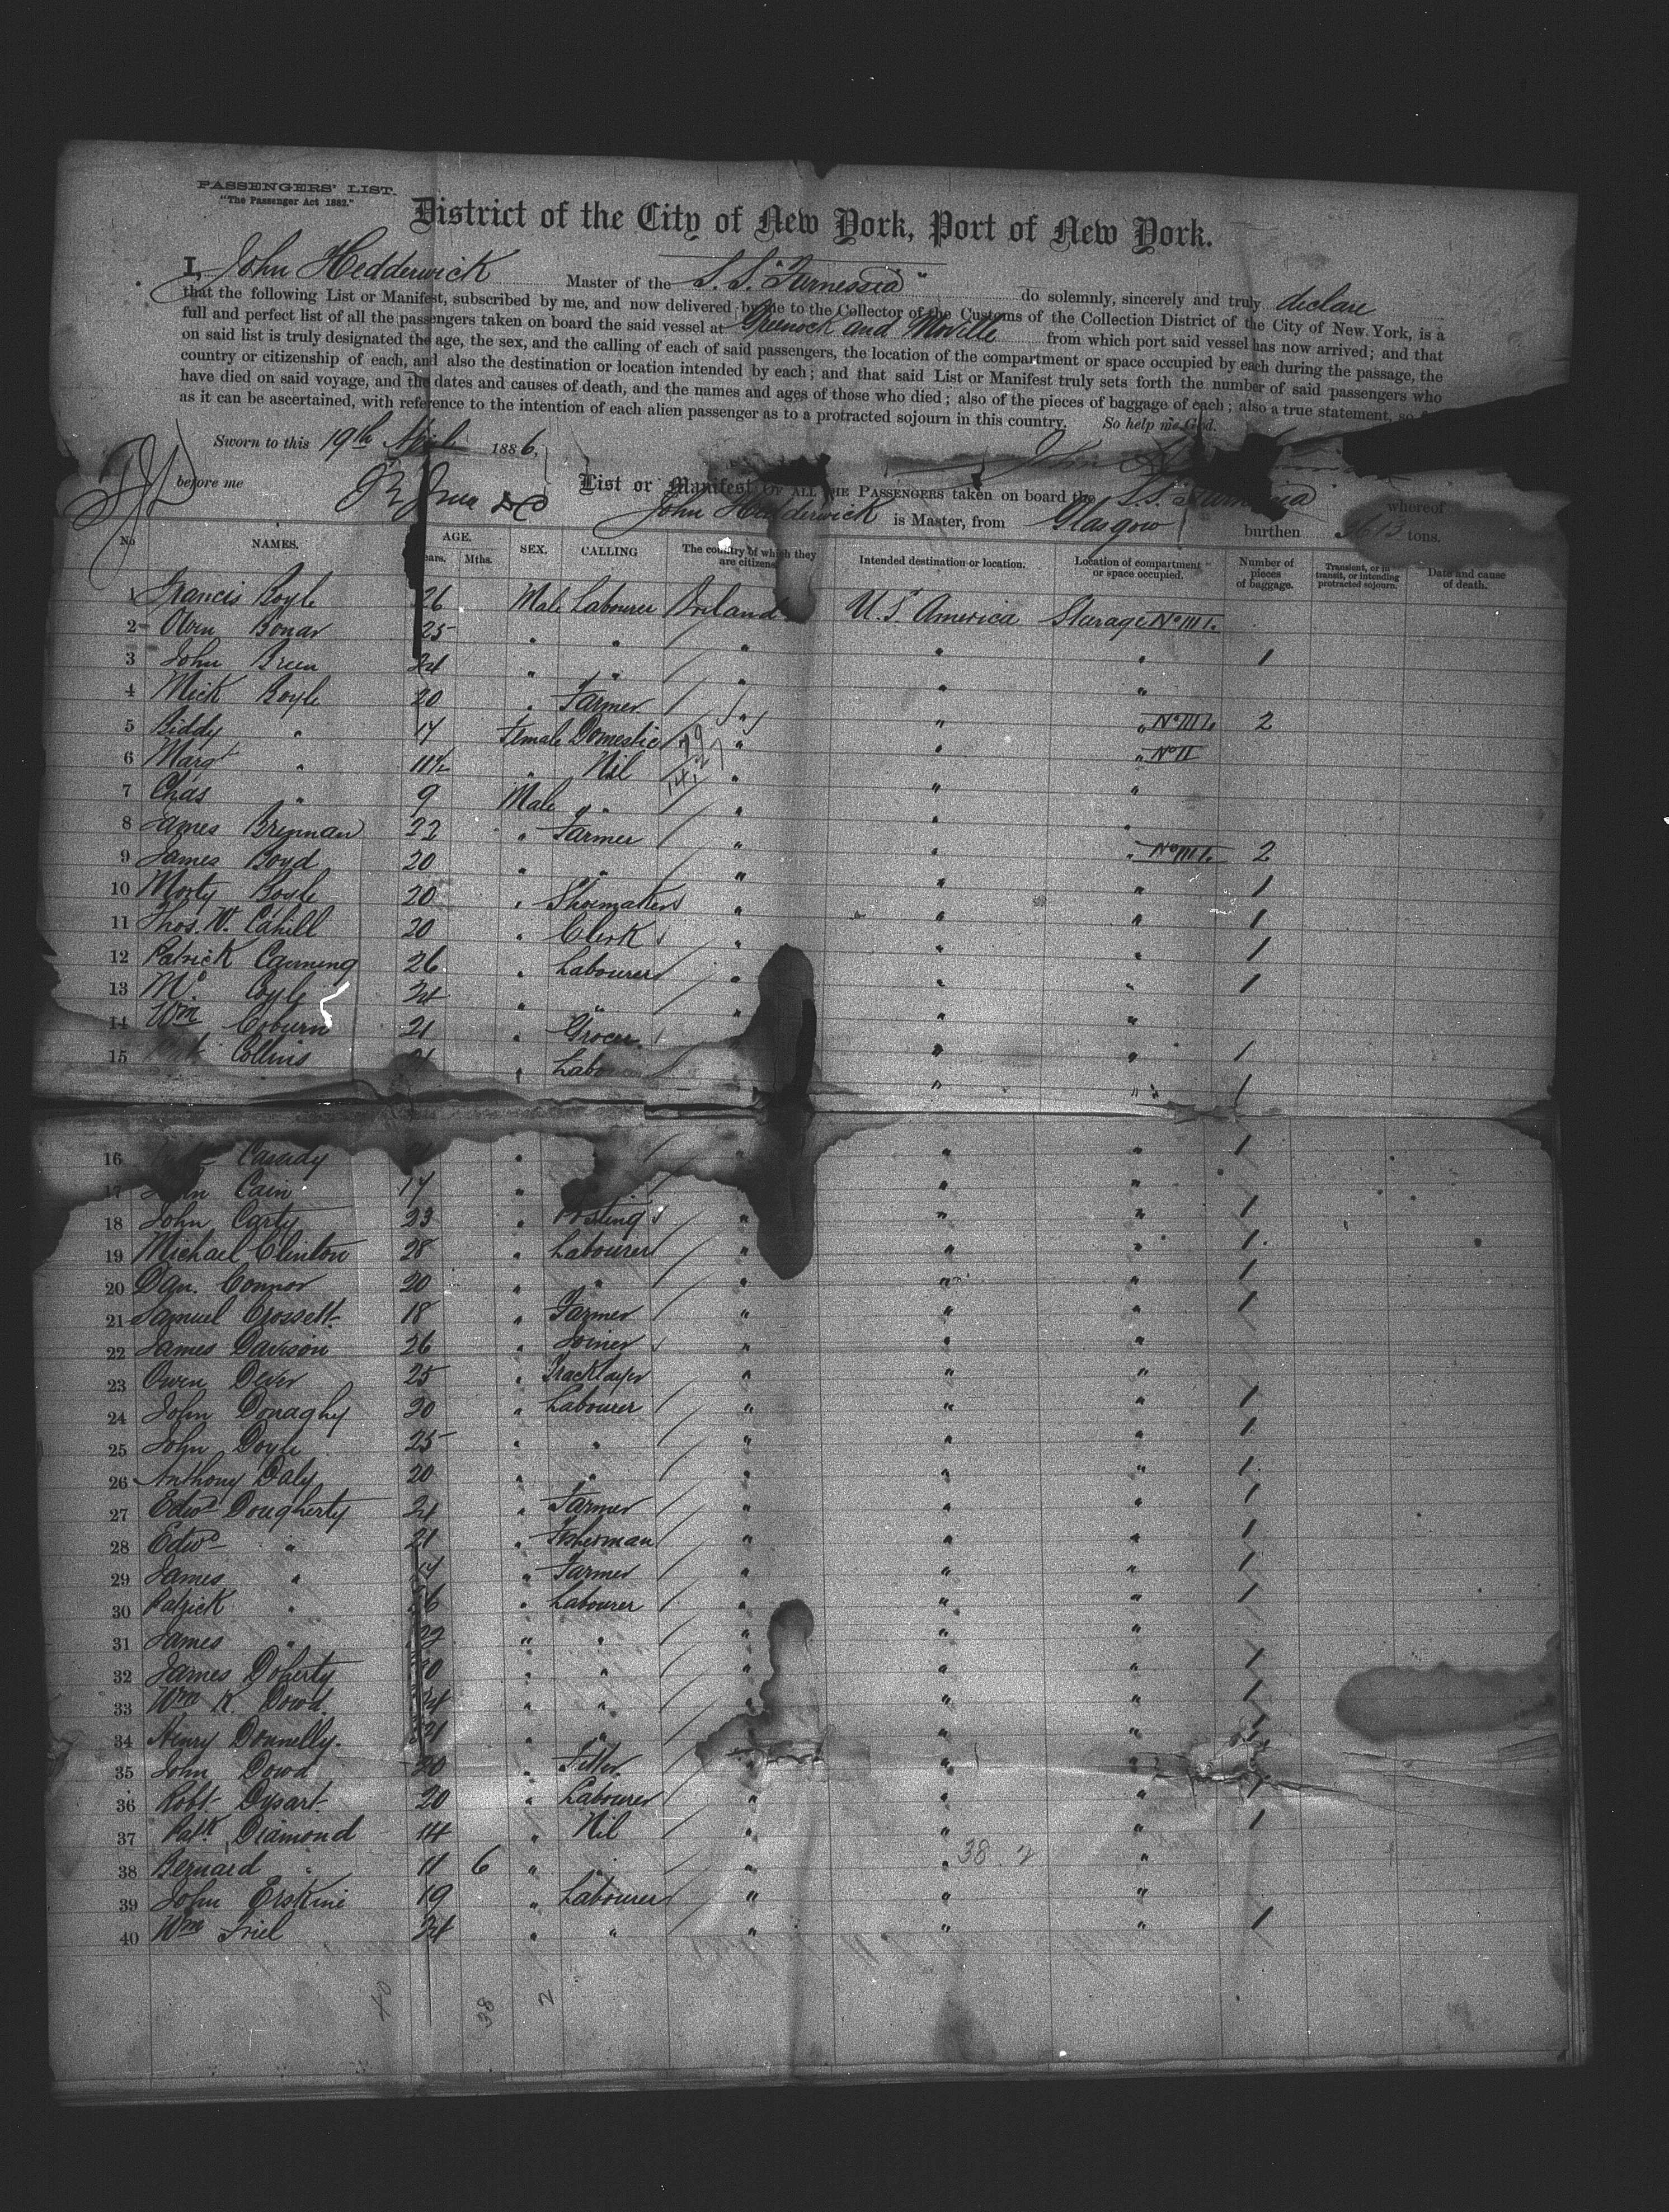 PASSENGERS' LIST.
"The Passenger Act 1882."
District of the City of New York, Port of New York.
I, John Hedderwick Master of the S.S. "Furnessia" do solemnly, sincerely and truly declare
that the following List or Manifest, subscribed by me, and now delivered by me to the Collector of the Customs of the Collection District of the City of New York, is a
full and perfect list of all the passengers taken on board the said vessel at Greenock and Moville from which port said vessel has now arrived; and that
on said list is truly designated the age, the sex, and the calling of each of said passengers, the location of the compartment or space occupied by each during the passage, the
country or citizenship of each, and also the destination or location intended by each; and that said List or Manifest truly sets forth the number of said passengers who
have died on said voyage, and the dates and causes of death, and the names and ages of those who died; also of the pieces of baggage of each; also a true statement, so
as it can be ascertained, with reference to the intention of each alien passenger as to a protracted sojourn in this country. So help me God.
Sworn to this 19th April 1886, John
before me
List or Manifest OF ALL THE PASSENGERS taken on board the S.S. Furnessia whereof
John Hedderwick is Master, from Glasgow burthen 3613 tons.
No NAMES. AGE. Years. Mths. SEX. CALLING The country of which they are citizens. Intended destination or location. Location of compartment or space occupied. Number of pieces of baggage. Transient, or in transit, or intending protracted sojourn. Date and cause of death.
1 Francis Boyle 26 Male Labourer Ireland U.S. America Steerage No III
2 Owen Bonar 25 " " " " " 1
3 John Breen 24 " " " " "
4 Mick Boyle 20 " Farmer " " " No III 2
5 Biddy " 17 Female Domestic " " " No II
6 Margt " 11½ " Nil " " "
7 Chas " 9 Male " " " "
8 James Brennan 22 " Farmer " " " No III 2
9 James Boyd 20 " " " " " 1
10 Morty Boyle 20 " Shoemaker " " " 1
11 Thos. W. Cahill 20 " Clerk " " " 1
12 Patrick Canning 26 " Labourer " " " 1
13 Coyle 24 " " " " "
14 Wm Coburn 21 " Grocer " " " 1
15 Collins " Labourer " " 1
16 Cassidy " " " " 1
17 John Cain 17 " " "
18 John Carty 23 " " " " 1
19 Michael Clinton 28 " Labourer " " " 1
20 Dan. Connor 20 " " " " " 1
21 Samuel Crossett 18 " Farmer " " " 1
22 James Davison 26 " Joiner " " "
23 Owen Dever 25 " Tracklayer " " "
24 John Donaghy 20 " Labourer " " " 1
25 John Doyle 25 " " " " " 1
26 Anthony Daly 20 " " " " " 1
27 Edwd Dougherty 24 " Farmer " " " 1
28 Edwd " 21 " Fisherman " " " 1
29 James " " Farmer " " " 1
30 Patrick " " Labourer " " " 1
31 James " 22 " " " " "
32 James Doherty " " " " " 1
33 Wm K. Dowd 24 " " " " " 1
34 Henry Donnelly. 21 " " " " " 1
35 John Dowd 20 " Fitter " " "
36 Robt Dysart 20 " Labourer " " " 1
37 Patk Diamond 14 " Nil " " " 1
38 Bernard " 11 6 " " " " "
39 John Erskine 19 " Labourer " " "
40 Wm Friel 24 " " " " " 1
38 . 2
40 38 2